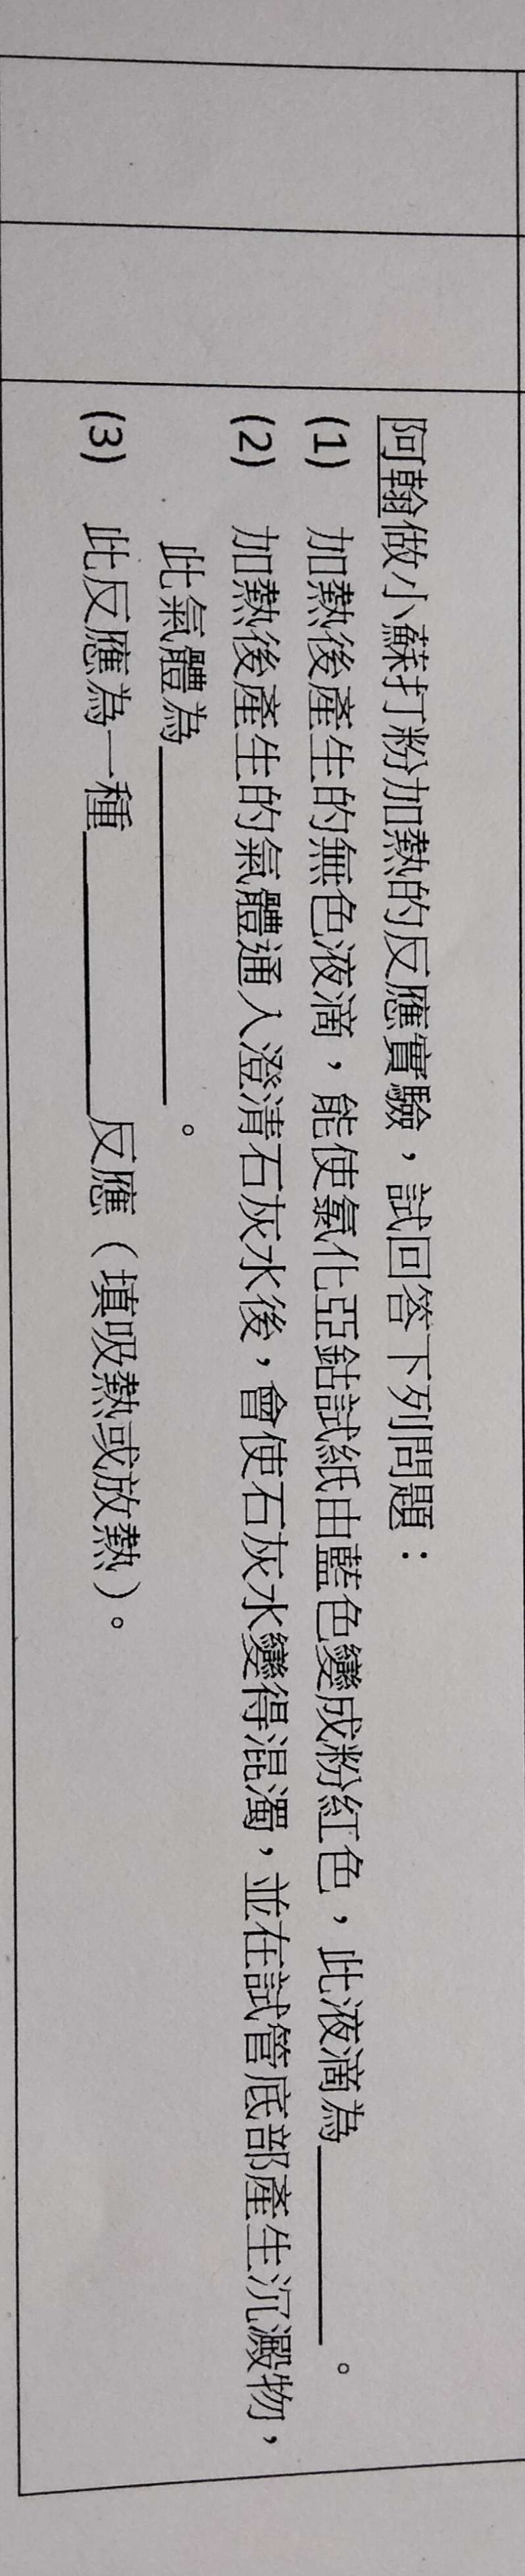 阿翰做小蘇打粉加熱的反應實驗，試回答下列問題：
(1) 加熱後產生的無色液滴，能使氯化亞鈷試紙由藍色變成粉紅色，此液滴為________。
(2) 加熱後產生的氣體通入澄清石灰水後，會使石灰水變得混濁，並在試管底部產生沉澱物，
此氣體為________。
(3) 此反應為一種________反應（填吸熱或放熱）。